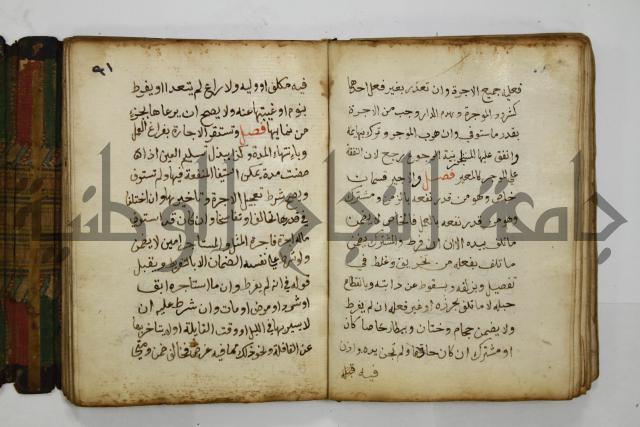 فعليه جميع الاجرة وان تعذر بغير فعل احدهما
كشرد الموجرة وهدم الدار وجب من الاجرة
بقدر ما استوفى وان هرب الموجر وترك بهائمه
وانفق عليها المستاجر بنية الرجوع رجع لان النفقة
على الموجر كالمعير فصل والاجير قسمان
خاص وهو من قدر نفعه بالزمن ومشترك
وهو من قدر نفعه بالعمل فالخاص لا يضمن
ما تلف بيده الا ان فرط والمشترك يضمن
ما تلف بفعله من تخريق وغلط في
تفصيل وبزلقه وبسقوط عن دابته وبانقطاع
حبله لا ما تلف بحرزه او غير فعله ان لم يفرط
ولا يضمن حجام وختان وبيطار خاصا كان
او مشتركا ان كان حاذقا ولم تجن يده واذن
فيه
٩١
فيه مكلف او وليه ولا راع لم يتعد او يفرط
بنوم او غيبتها عنه ولا يصح ان يرعاها بجزء
من نمائها فصل وتستقر الاجارة بفراغ العمل
وبانتهاء المدة وكذا ببذل تسليم العين اذا
مضت مدة يمكن استيفاء المنفعة فيها ولم تستوف
ويصح شرط تعجيل الاجرة وتاخيرها وان اختلفا
في قدرها تحالفا وتفاسخا وان كان قد استوفى
ماله اجرة فاجرة المثل والمستاجر امين لا يضمن
ولو شرط على نفسه الضمان الا بالتفريط ويقبل
قوله في انه لم يفرط وان ما استاجره ابق
او شرد او مرض او مات وان شرط عليه ان
لا يسير بها في الليل او وقت القائلة او لا يتاخر بها
عن القافلة ونحو ذلك مما فيه غرض فخالف ضمن ومتى
جامعة النجاح الوطنية